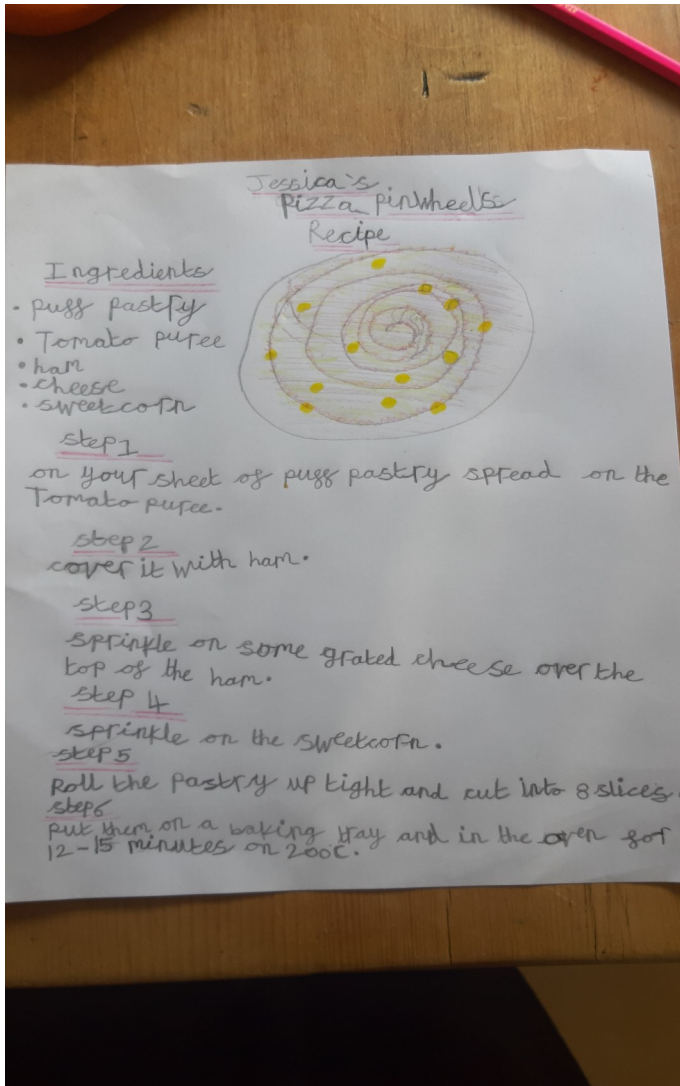 Jessica's
Pizza Pinwheel's
Recipe
Ingredients
• puff pastry
• Tomato puree
• ham
• cheese
• sweetcorn
step 1
on your sheet of puff pastry spread on the
Tomato puree.
step 2
cover it with ham.
step 3
sprinkle on some grated cheese over the
top of the ham.
step 4
sprinkle on the sweetcorn.
step 5
Roll the pastry up tight and cut into 8 slices.
step 6
put them on a baking tray and in the oven for
12-15 minutes on 200c.